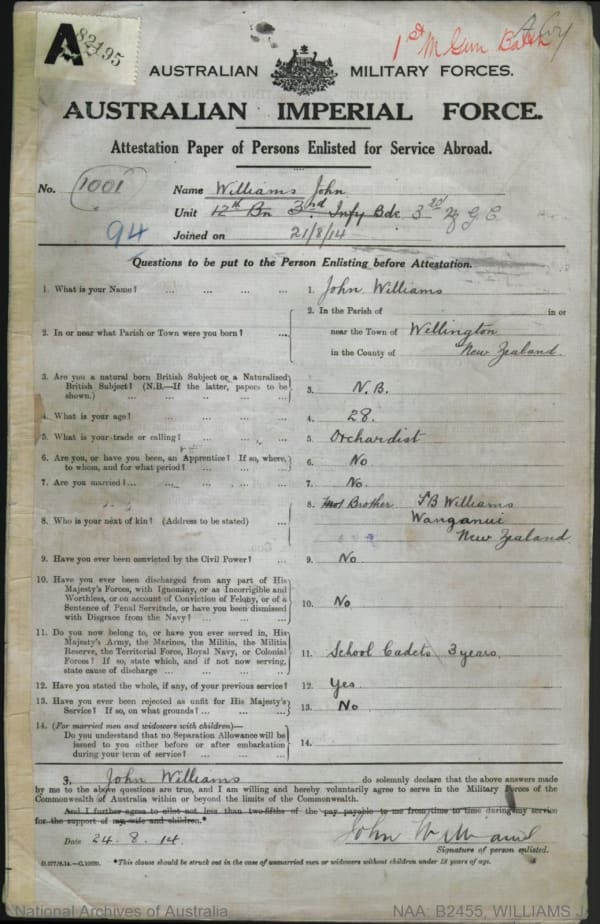 A
82195
1st M Gun Batch
AUSTRALIAN MILITARY FORCES.
AUSTRALIAN IMPERIAL FORCE.
Attestation Paper of Persons Enlisted for Service Abroad.
No. 1001 Name Williams John
Unit 12th Bn 3rd Infy Bde 3rd
94 Joined on 21/8/14
Questions to be put to the Person Enlisting before Attestation.
1. What is your Name? ... ... ... ... 1. John Williams
2. In or near what Parish or Town were you born? ... 2. In the Parish of in or
near the Town of Wellington
in the County of New Zealand.
3. Are you a natural born British Subject or a Naturalised
British Subject? (N.B.—If the latter, papers to be
shown.) ... ... ... ... 3. N.B.
4. What is your age? ... ... ... ... 4. 28.
5. What is your trade or calling? ... ... ... 5. Orchardist
6. Are you, or have you been, an Apprentice? If so, where,
to whom, and for what period? ... ... ... 6. No
7. Are you married? ... ... ... ... 7. No.
8. Who is your next of kin? (Address to be stated) ... 8. Brother J B Williams
Wanganui
New Zealand
9. Have you ever been convicted by the Civil Power? ... 9. No
10. Have you ever been discharged from any part of His
Majesty's Forces, with Ignominy, or as Incorrigible and
Worthless, or on account of Conviction of Felony, or of a
Sentence of Penal Servitude, or have you been dismissed
with Disgrace from the Navy? ... ... ... 10. No
11. Do you now belong to, or have you ever served in, His
Majesty's Army, the Marines, the Militia, the Militia
Reserve, the Territorial Force, Royal Navy, or Colonial
Forces? If so, state which, and if not now serving,
state cause of discharge ... ... ... 11. School Cadets 3 years.
12. Have you stated the whole, if any, of your previous service? 12. Yes.
13. Have you ever been rejected as unfit for His Majesty's
Service? If so, on what grounds? ... ... ... 13. No
14. (For married men and widowers with children)—
Do you understand that no Separation Allowance will be
issued to you either before or after embarkation
during your term of service? ... ... ... 14.
I, John Williams do solemnly declare that the above answers made
by me to the above questions are true, and I am willing and hereby voluntarily agree to serve in the Military Forces of the
Commonwealth of Australia within or beyond the limits of the Commonwealth.
And I further agree to allot not less than two-fifths of the pay payable to me from time to time during my service
for the support of my wife and children.*
Date 24.8.14 John Williams
Signature of person enlisted.
*This clause should be struck out in the case of unmarried men or widowers without children under 18 years of age.
National Archives of Australia NAA: B2455, WILLIAMS J